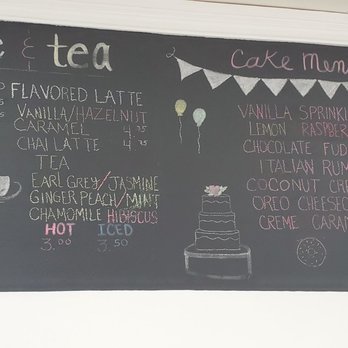 & tea
FLAVORED LATTE
VANILLA/HAZELNUT
CARAMEL 4.75
CHAI LATTE 4.75
TEA
EARL GREY/JASMINE
GINGER PEACH/MINT
CHAMOMILE HIBISCUS
HOT ICED
3.00 3.50
Cake Men
VANILLA SPRINK
LEMON RASPBER
CHOCOLATE FUD
ITALIAN RUM
COCONUT CR
OREO CHEESEC
CREME CARA